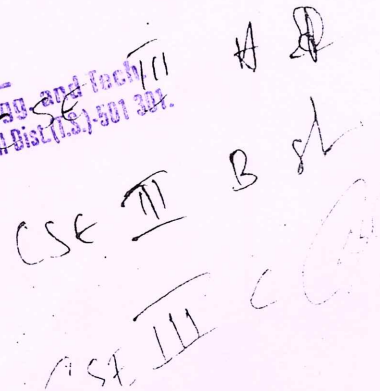 gg. and Tech
Dist.(T.S.)-501 301.
CSE III A
CSE III B
CSE III C